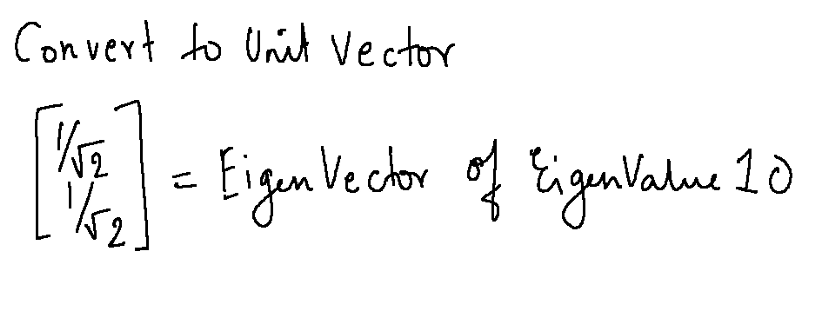 Convert to Unit Vector
[1/√2
1/√2] = Eigen Vector of EigenValue 10